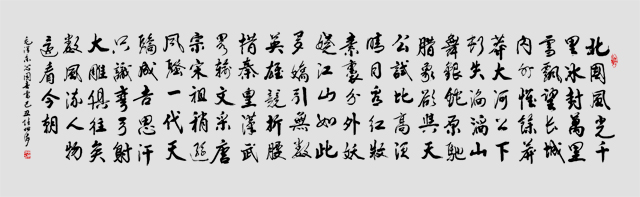 北國風光千
里冰封萬里
雪飘望長城
内外惟餘莽
莽大河上下
頓失滔滔山
舞銀蛇原馳
腊象欲與天
公試比高須
晴日看紅妝
素裹分外妖
娆江山如此
多嬌引無數
英雄競折腰
惜秦皇漢武
畧輸文采唐
宗宋祖稍遜
風騷一代天
驕成吉思汗
只識彎弓射
大雕俱往矣
數風流人物
還看今朝
毛澤東沁園春雪